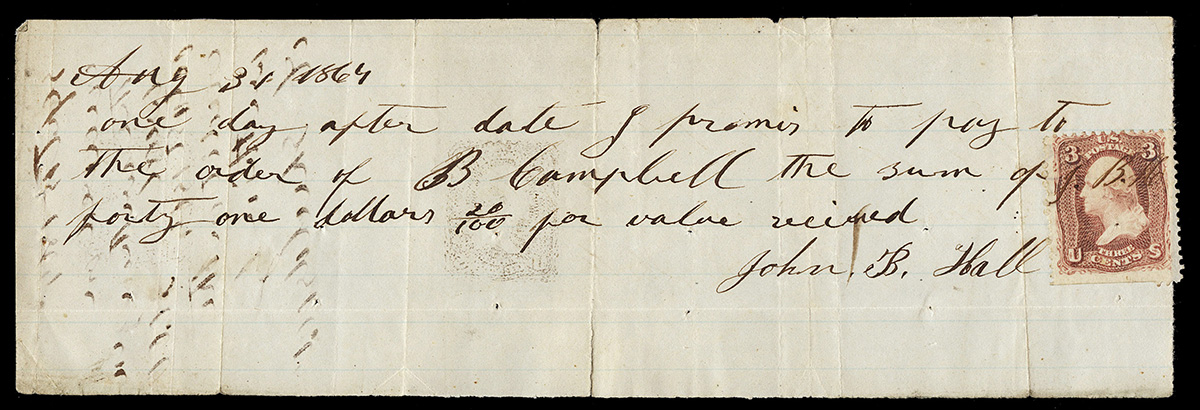 Aug 31 1864
one day after date I promis to pay to
the order of B Campbell the sum of
forty one dollars 20/100 for value recived
John B. Hall
3 U.S. POSTAGE 3
J. B. H
U THREE CENTS S